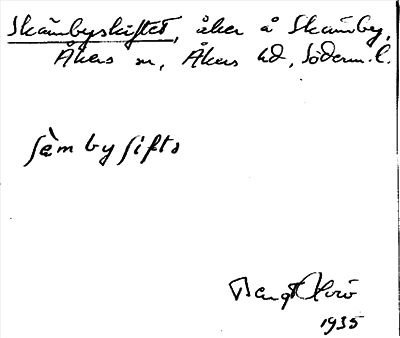 Skämbyskiftet, åker å Skämby,
Åkers sn, Åkers hd, Söderm. l.
ʃä̀m by ʃifts
Bengt
1935